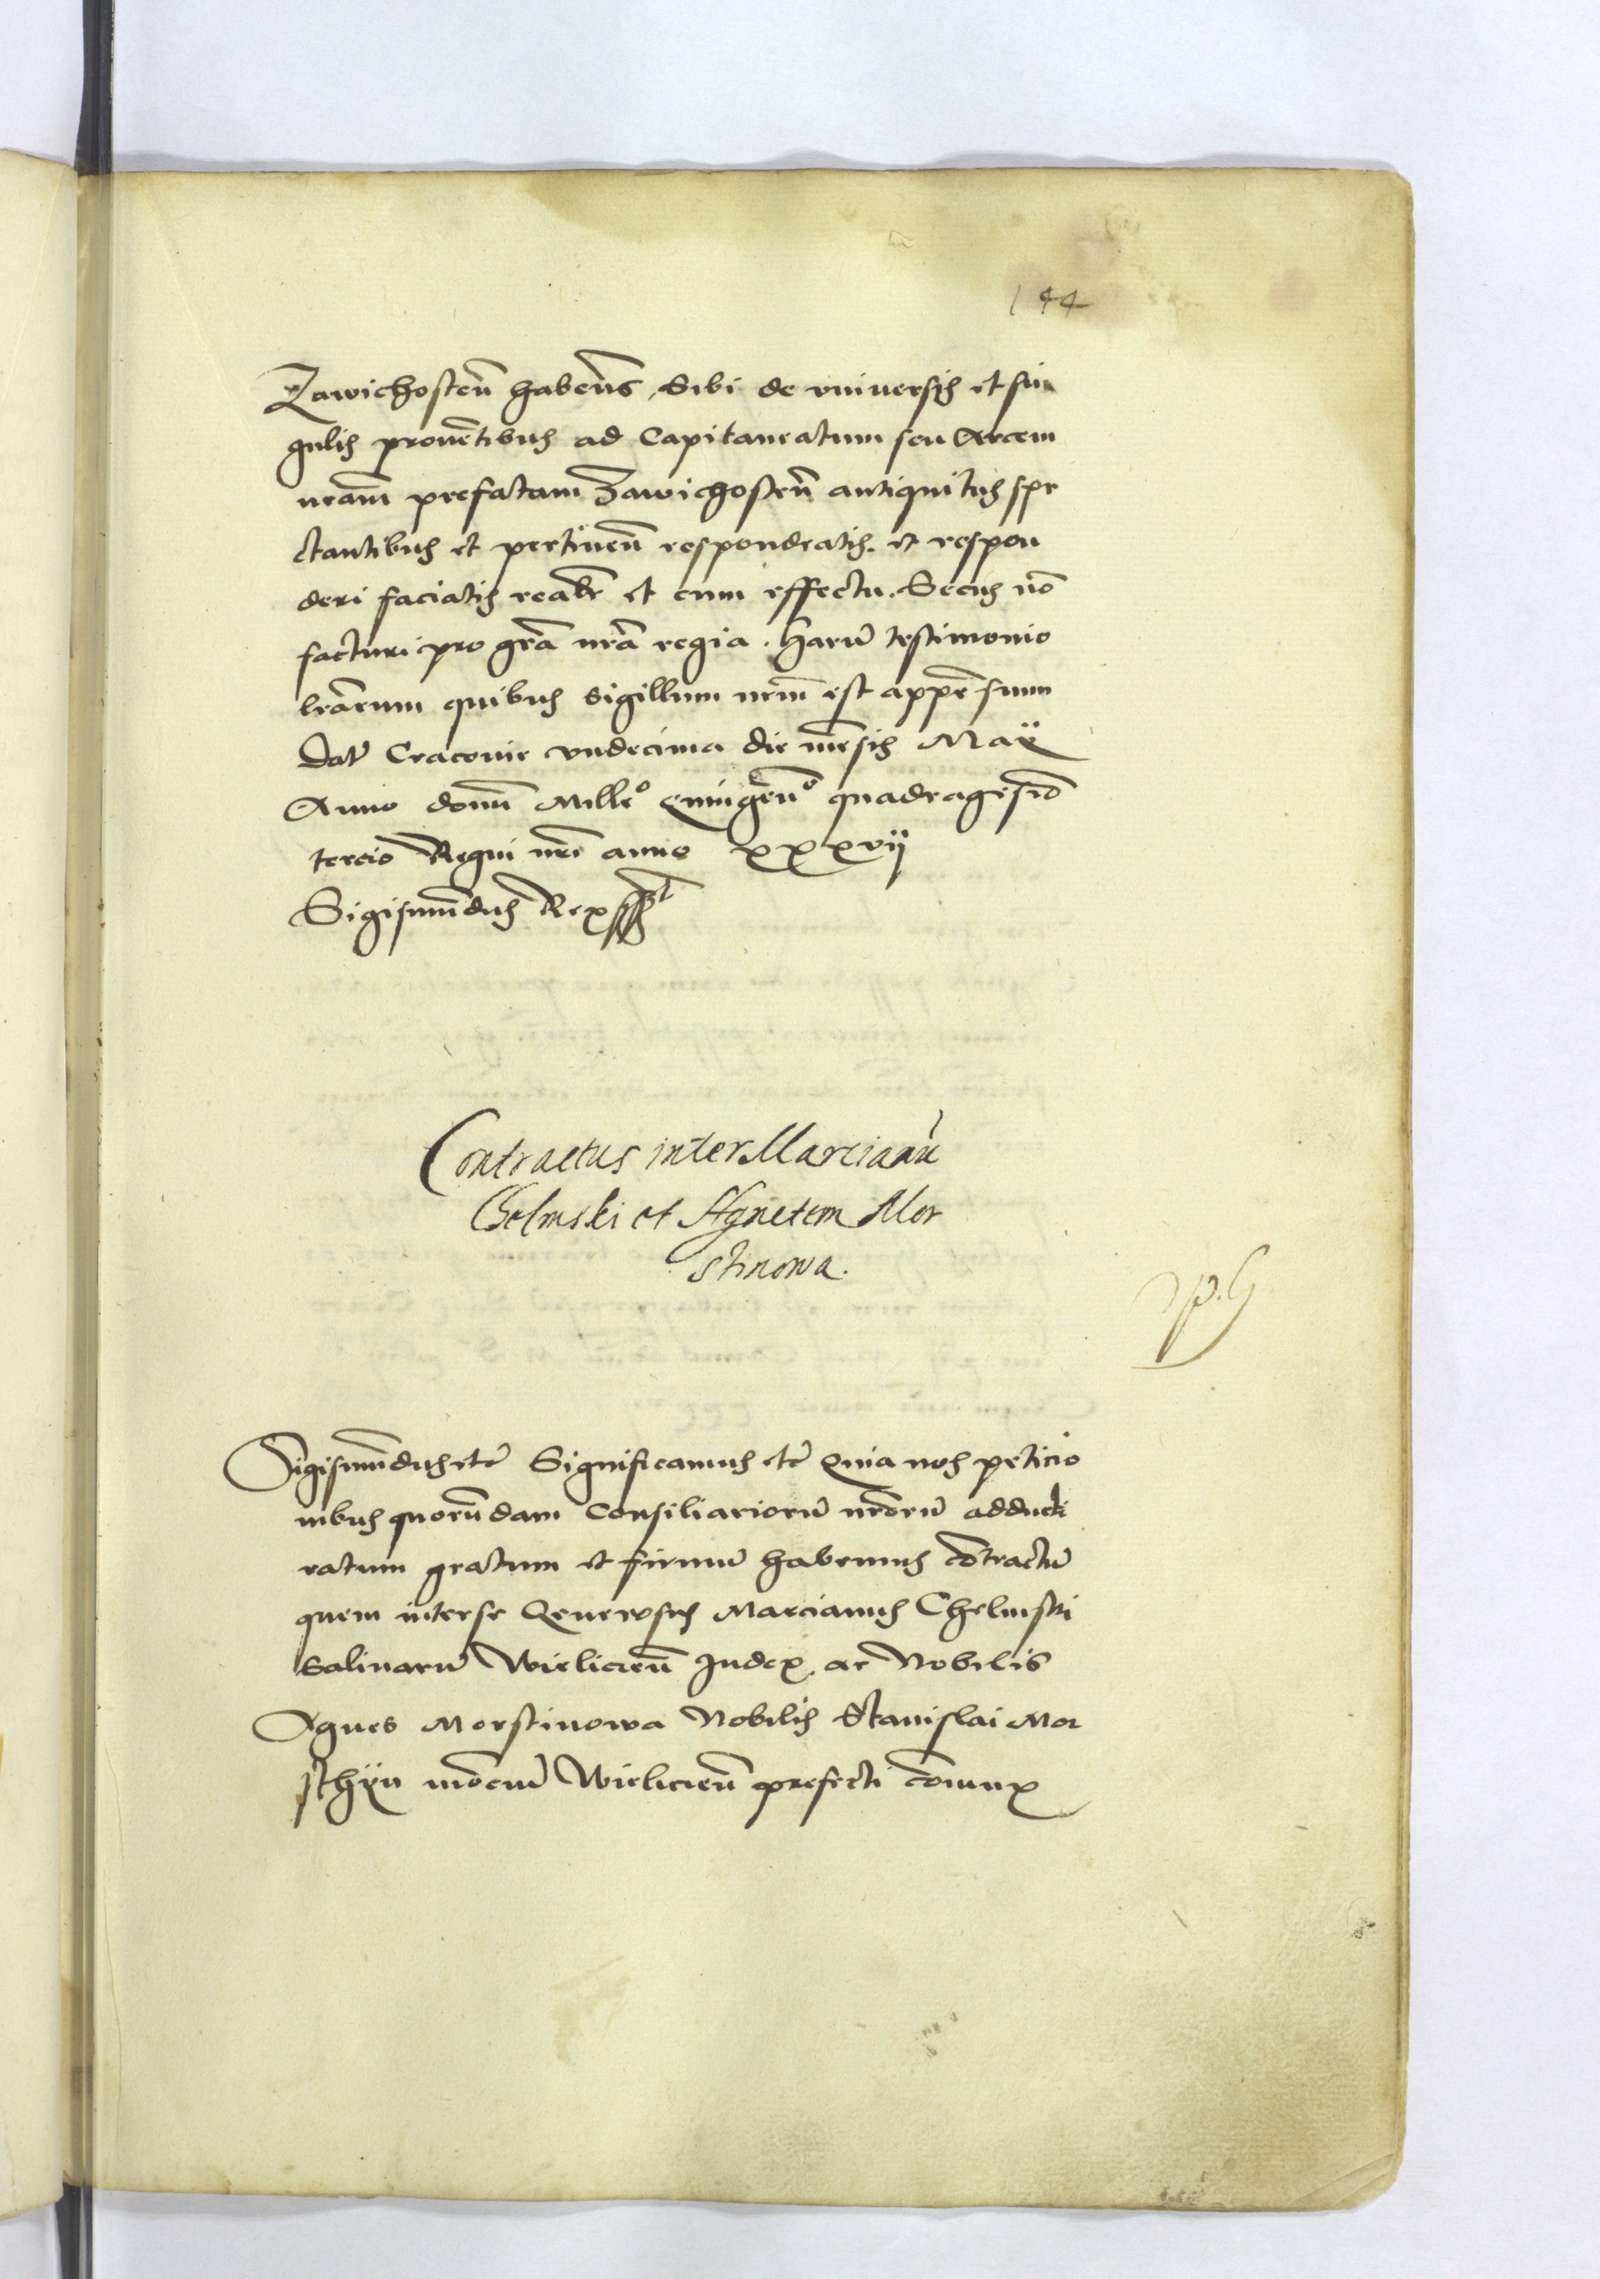 144
Zawichosteñ habeñs, Sibi de vniversis et sin
gulis provētibus ad Capitaneatum seu Arcem
nrãm prefatam Zawichosteñ antiquitus spe
ctantibus et pertineñ respondeatis. et respon
deri faciatis realr et cum effectu. Secus nō
facturi pro grã nrã regia. Harũ testimonio
lrãrum quibus sigillum nrm̃ est appēsum
Dat Cracovie vndecima die mēsis Maÿ
Anno domĩ Mille° quingeñ° quadragesiō
tercio Regni nrĩ anno xxxvij
Sigismũdus Rex sst
Contractus inter Marcianũ
Chelmski et Agnetem Mor
stinowa.
Sigismũdus etc Significamus etc Quia nos peticio
nibus quorũdam Consiliariorũ nrõrũ adducti
ratum gratum et firmũ habemus cōtractũ
quem inter se Generosus Marcianus Chelmski
Salinarũ Wielicieñ Iudex ac Nobilis
Agnes Morstinowa Nobilis Stanislai Mor
sthÿn mōciũ Wielicieñ prefecti cōiunx